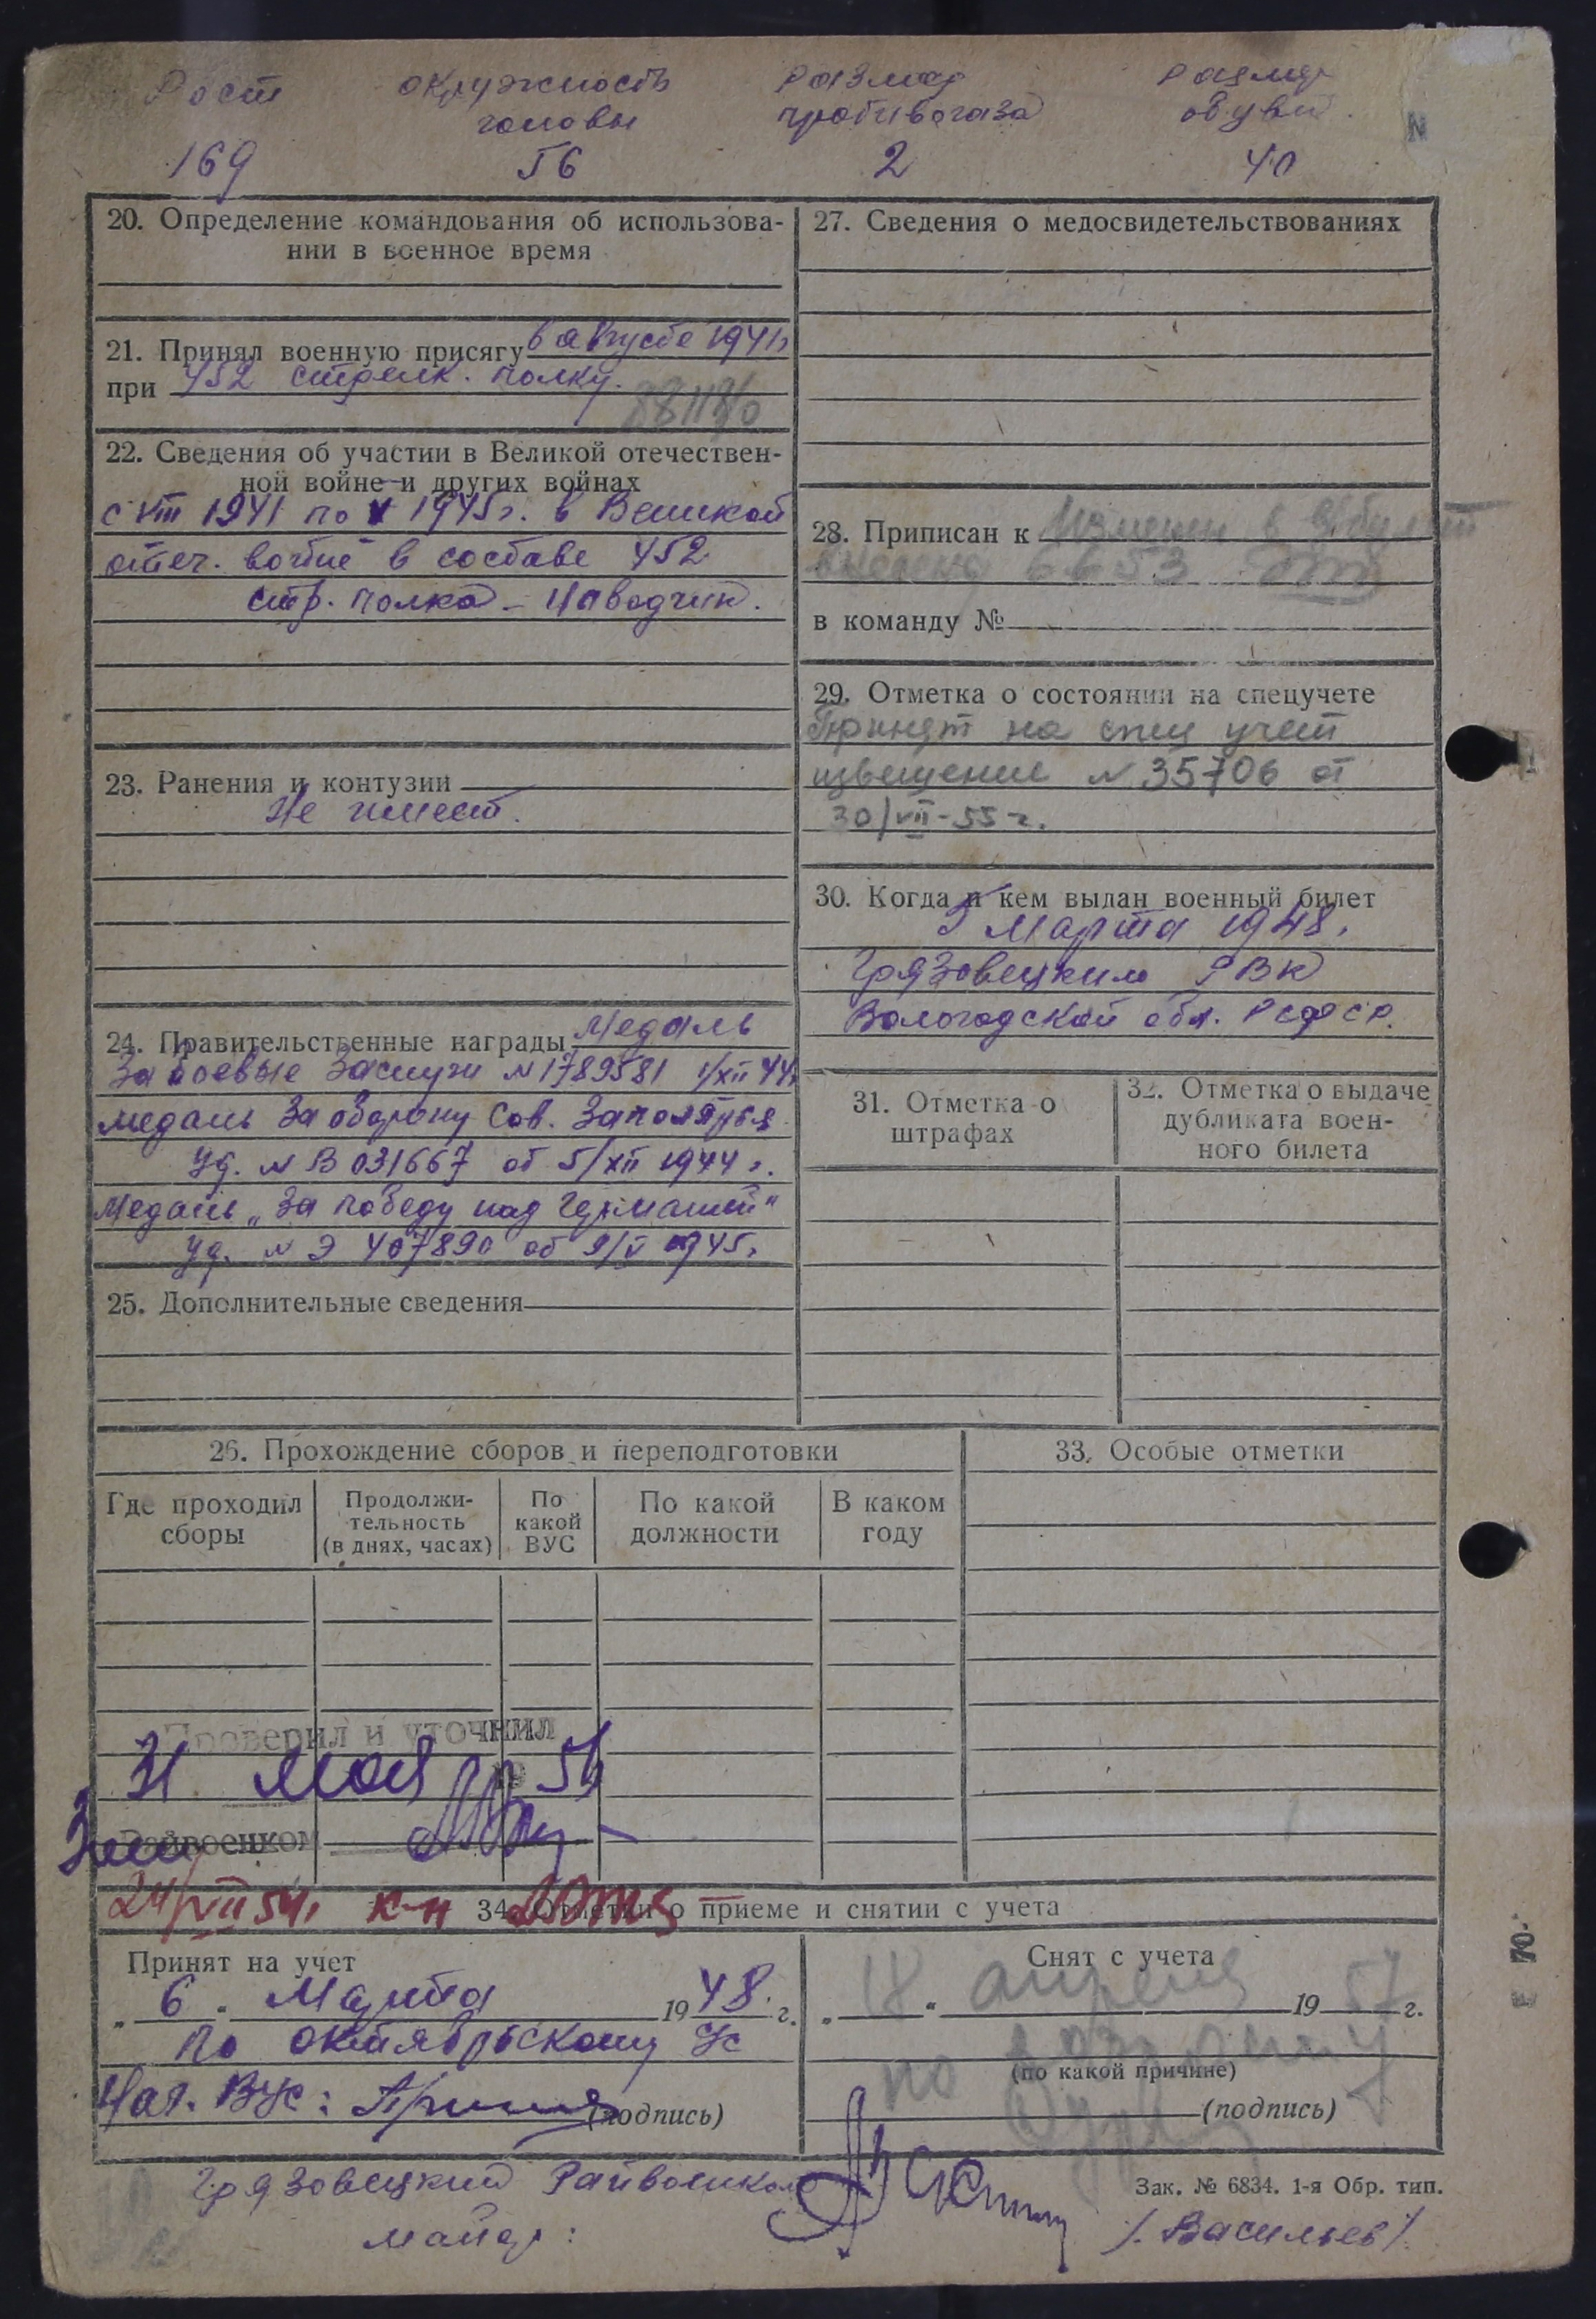 Рост окружность Размер Размер
головы противогаза обуви
169 56 2 40
20. Определение командования об использова-
нии в военное время
21. Принял военную присягу в августе 1941г
при 452 стрелк. полку.
22. Сведения об участии в Великой отечествен-
ной войне и других войнах
с VIII 1941 по V 1945г. в Великой
отеч. войне в составе 452
стр. полка – наводчик.
23. Ранения и контузии
Не имеет.
24. Правительственные награды Медаль
За боевые Заслуги №1789581 1/XII 44г
медаль За оборону Сов. Заполярья
уд. № В 031667 от 5/XII 1944 г.
Медаль „За победу над Германией"
уд. № Э 407890 от 9/V 1945г
25. Дополнительные сведения
27. Сведения о медосвидетельствованиях
28. Приписан к
6653
в команду №
29. Отметка о состоянии на спецучете
Принят на спец учет
извещение №35706 от
30/VII-55 г.
30. Когда и кем выдан военный билет
5 Марта 1948.
Грязовецким РВК
Вологодской обл. РСФСР.
31. Отметка о
штрафах
32. Отметка о выдаче
дубликата воен-
ного билета
26. Прохождение сборов и переподготовки
Где проходил
сборы
Продолжи-
тельность
(в днях, часах)
По
какой
ВУС
По какой
должности
В каком
году
33. Особые отметки
Проверил и уточнил
31 мая 19
Райвоенком
24/VII 54г к-н
34. Отметки о приеме и снятии с учета
Принят на учет
„ 6 " Марта 1948 г.
по октябрьскому ус
Нач. Вус: (подпись)
Снят с учета
„ 18 " апреля 1957 г.
по возрасту
(по какой причине)
(подпись)
Грязовецкий Райвоенком
майор:
/Васильев/
Зак. № 6834. 1-я Обр. тип.